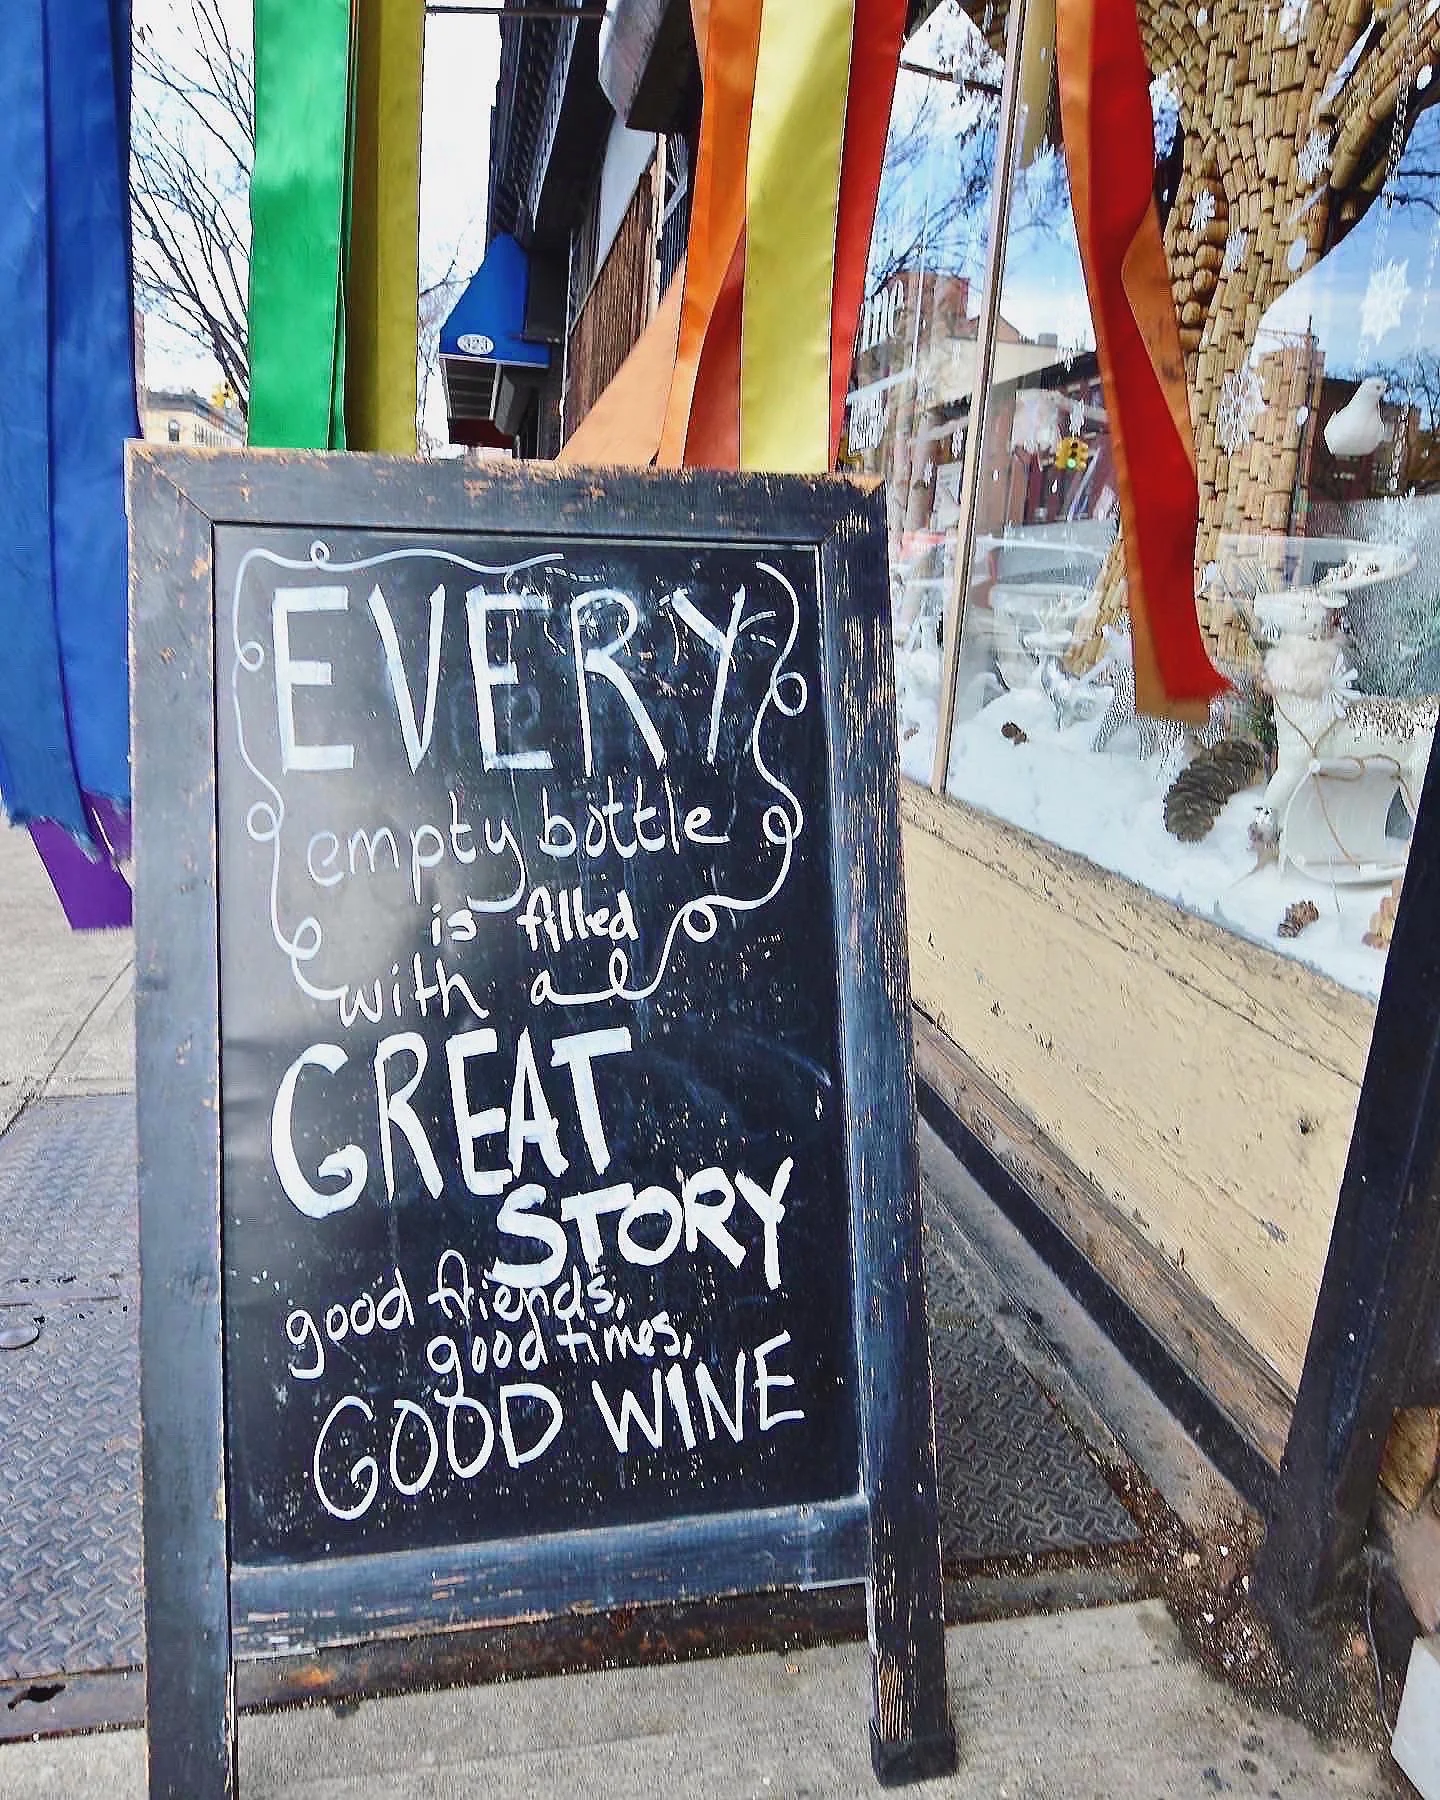 EVERY
empty bottle
is filled
with a
GREAT
STORY
good friends,
good times,
GOOD WINE